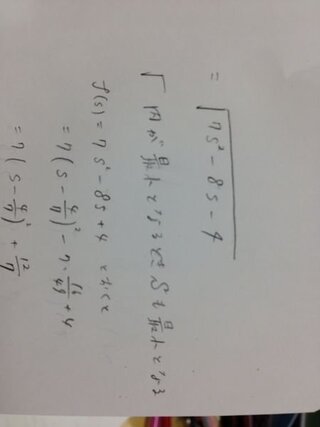 = √7s² - 8s - 4
√ 内が最小となるとき最小となる
f(s) = 7s² - 8s + 4 とおくと
= 7(s - 4/7)² - 7·16/49 + 4
= 7(s - 4/7)² + 12/7